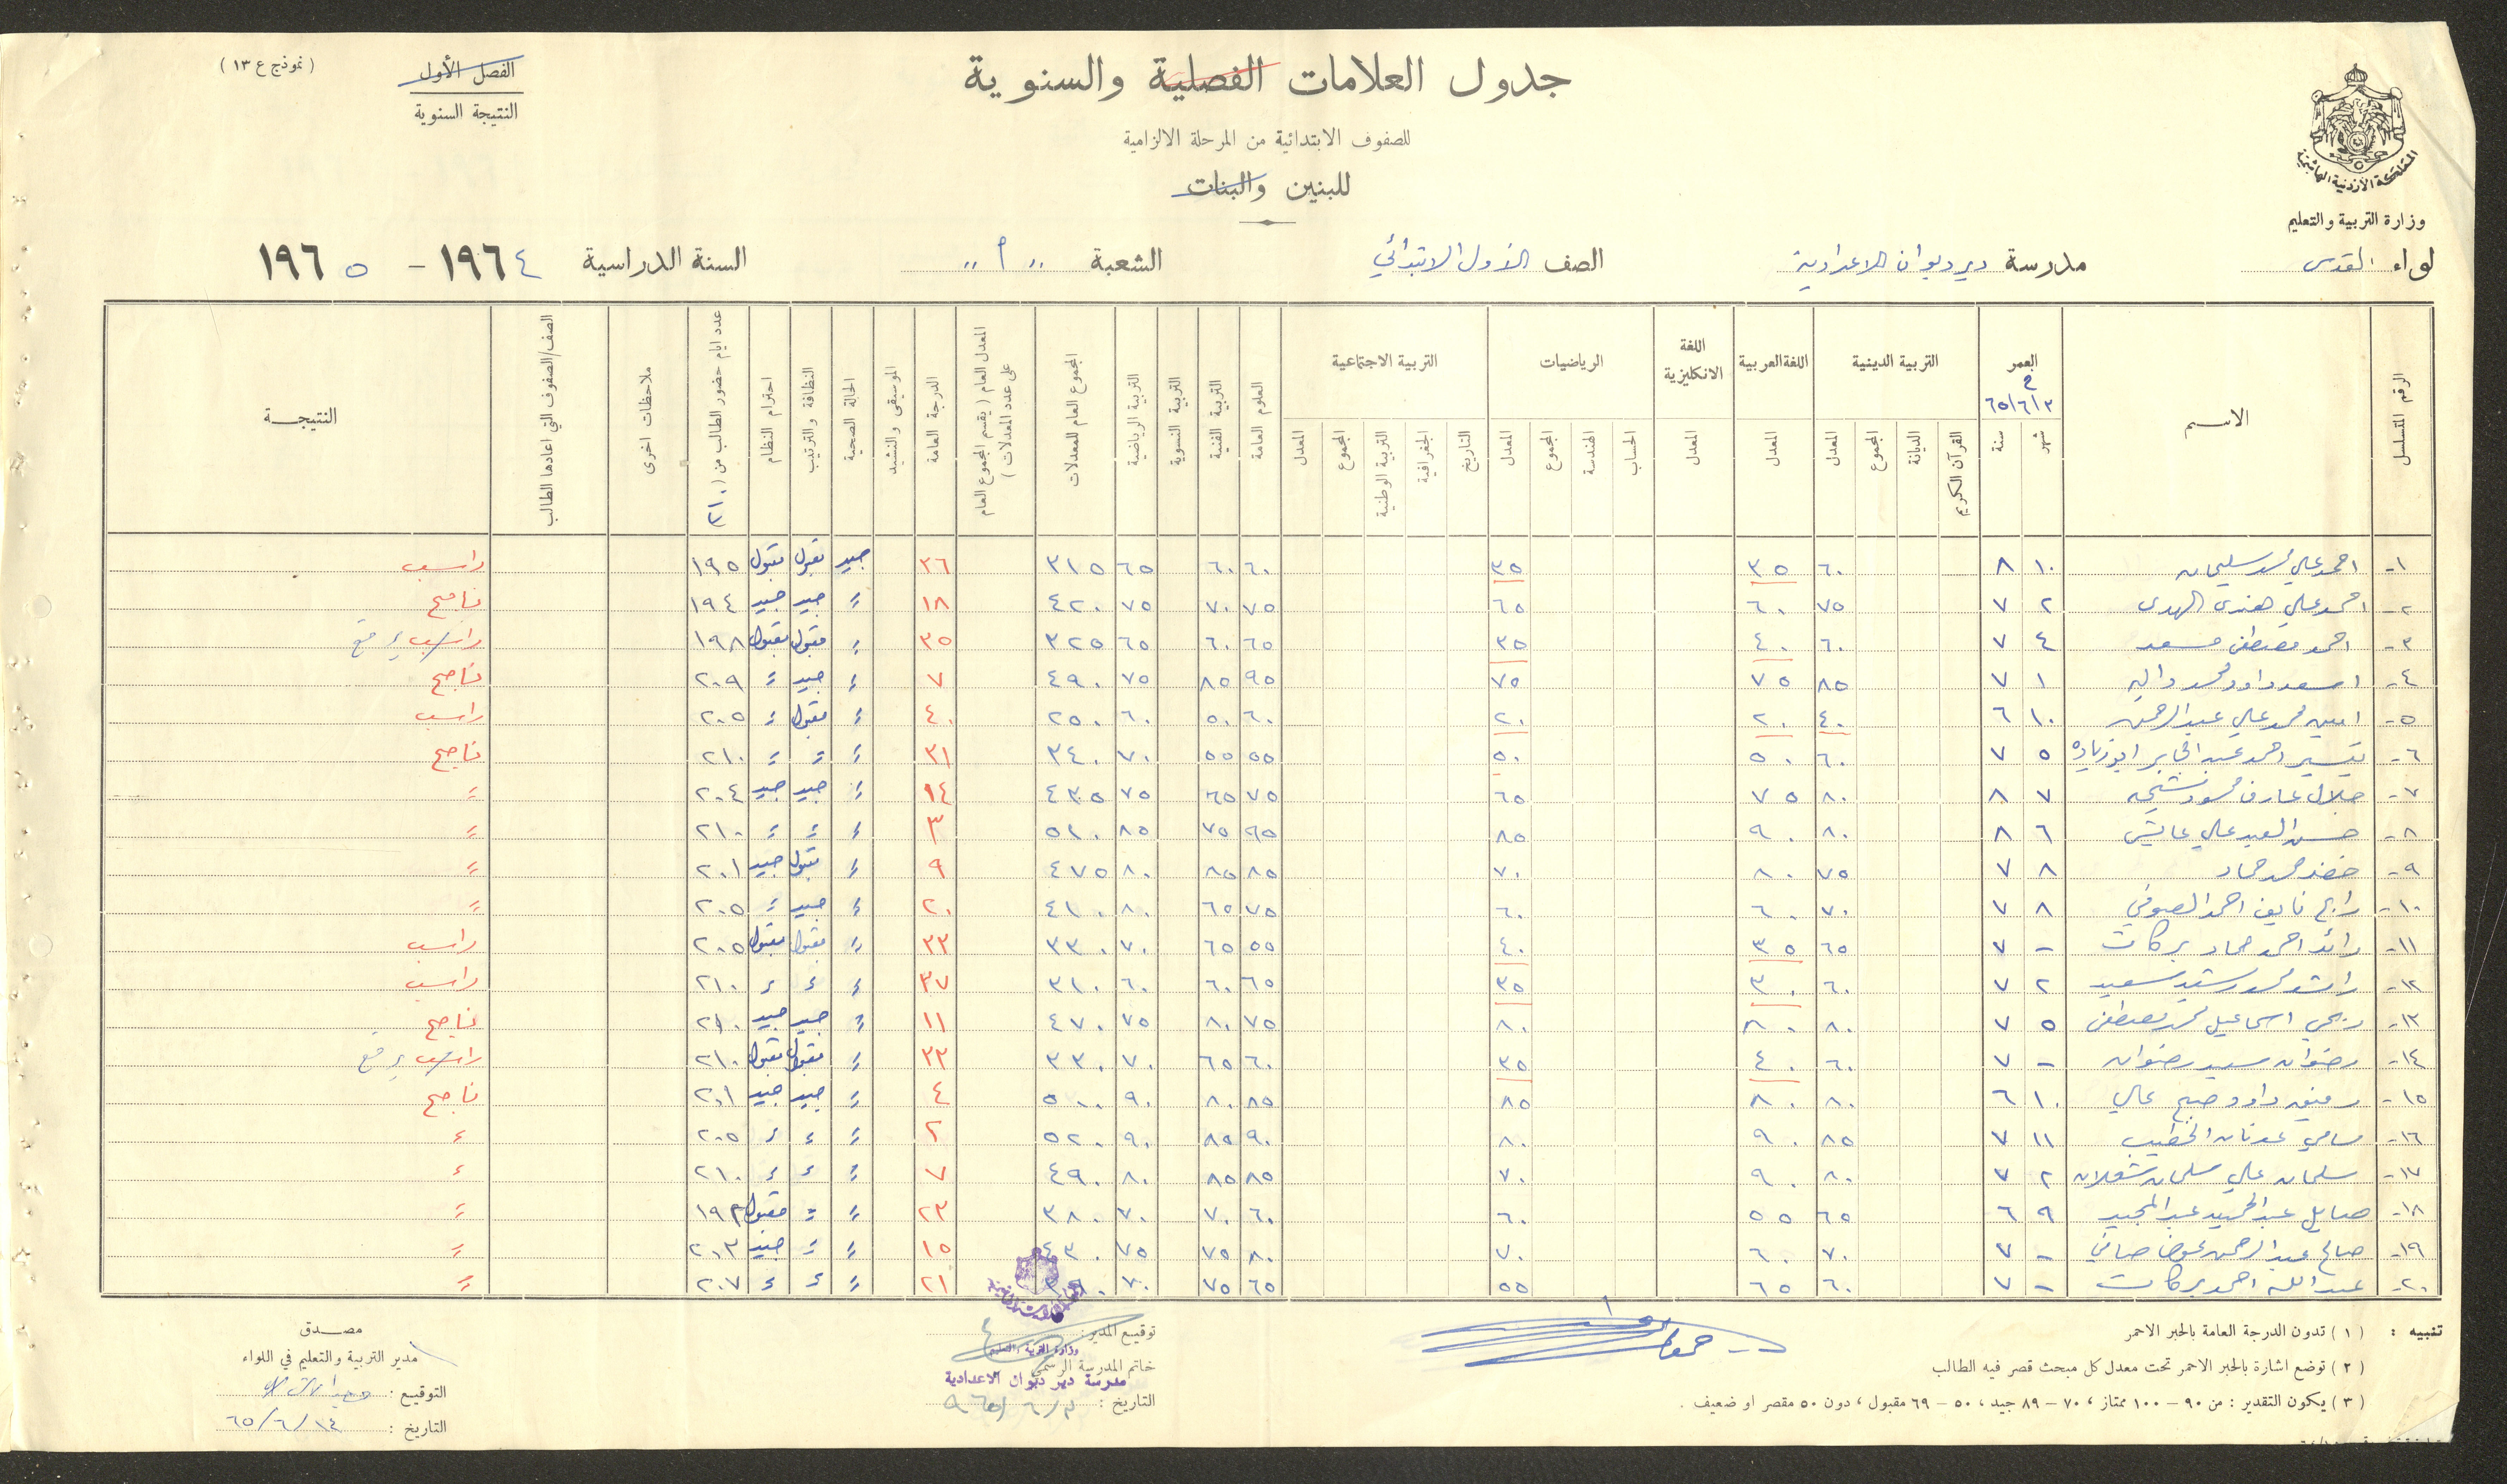 (نموذج ع ١٣)
الفصل الأول
النتيجة السنوية
جدول العلامات الفصلية والسنوية
للصفوف الابتدائية من المرحلة الالزامية
للبنين والبنات
المملكة الأردنية الهاشمية
وزارة التربية والتعليم
لواء القدس مدرسة دير ديوان الاعدادية الصف الاول الابتدائي الشعبة "أ" السنة الدراسية ١٩٦٤ - ١٩٦٥
الرقم المتسلسل الاسم العمر التربية الدينية اللغة العربية اللغة الانكليزية الرياضيات التربية الاجتماعية العلوم العامة التربية الفنية التربية النسوية التربية الرياضية المجموع العام للمعدلات المعدل العام (يقسم المجموع العام على عدد المعدلات) الدرجة العامة الموسيقى والنشيد الحالة الصحية النظافة والترتيب احترام النظام عدد ايام حضور الطالب من (٢١٠) ملاحظات اخرى الصف/الصفوف التي اعادها الطالب النتيجة
شهر سنة القرآن الكريم الديانة المجموع المعدل المعدل المعدل الحساب الهندسة المجموع المعدل التاريخ الجغرافية التربية الوطنية المجموع المعدل
١- احمد علي محمد سليمان ١٠ ٨ ٦٠ ٣٥ ٣٥ ٦٠ ٦٠ ٦٥ ٣١٥ ٣٦ جيد مقبول مقبول ١٩٥ راسب
٢- احمد علي هندي ٢ ٧ ٧٥ ٦٠ ٦٥ ٧٥ ٧٠ ٧٥ ٤٢٠ ١٨ " جيد جيد ١٩٤ ناجح
٣- احمد مصطفى مسعد ٤ ٧ ٦٠ ٤٠ ٣٥ ٦٥ ٦٠ ٦٥ ٣٢٥ ٣٥ " مقبول مقبول ١٩٨ راسب
٤- اسعد داود محمد ١ ٧ ٨٥ ٧٥ ٧٥ ٩٥ ٨٥ ٧٥ ٤٩٠ ٧ " جيد " ٢٠٩ ناجح
٥- امين محمد علي عبد الرحمن ١٠ ٦ ٤٠ ٢٠ ٢٠ ٦٠ ٥٠ ٦٠ ٢٥٠ ٤٠ " مقبول " ٢٠٥ راسب
٦- تيسير احمد عبد الجابر ابو زياده ٥ ٧ ٦٠ ٥٠ ٥٠ ٥٥ ٥٥ ٧٠ ٣٤٠ ٣١ " " " ٢١٠ ناجح
٧- جلال عارف محمود ٧ ٨ ٨٠ ٧٥ ٦٥ ٧٥ ٦٥ ٧٥ ٤٣٥ ١٤ " جيد جيد ٢٠٤ "
٨- حسن العبد علي عايش ٦ ٨ ٨٠ ٩٠ ٨٥ ٩٥ ٧٥ ٨٥ ٥١٠ ٣ " " " ٢١٠ "
٩- خضر محمد حماد ٨ ٧ ٧٥ ٨٠ ٧٠ ٨٥ ٨٥ ٨٠ ٤٧٥ ٩ " مقبول جيد ٢٠١ "
١٠- رابح نايف احمد الصوفي ٨ ٧ ٧٠ ٦٠ ٦٠ ٧٥ ٦٥ ٨٠ ٤١٠ ٢٠ " جيد " ٢٠٥ "
١١- رائد احمد حماد بركات - ٧ ٦٥ ٣٥ ٤٠ ٥٥ ٦٥ ٧٠ ٣٣٠ ٣٣ " مقبول مقبول ٢٠٥ راسب
١٢- راشد محمد رشيد سعيد ٢ ٧ ٦٠ ٣٠ ٣٥ ٦٥ ٦٠ ٦٠ ٣١٠ ٣٧ " " " ٢١٠ راسب
١٣- ربحي اسماعيل محمد مصطفى ٥ ٧ ٨٠ ٨٠ ٨٠ ٧٥ ٨٠ ٧٥ ٤٧٠ ١١ " جيد جيد ٢١٠ ناجح
١٤- رضوان سعيد رضوان - ٧ ٦٠ ٤٠ ٣٥ ٦٠ ٦٥ ٧٠ ٣٣٠ ٣٣ " مقبول مقبول ٢١٠ راسب
١٥- رفيق داود صبح علي ١٠ ٦ ٨٠ ٨٠ ٨٥ ٨٥ ٨٠ ٩٠ ٥٠٠ ٤ " جيد جيد ٢٠١ ناجح
١٦- سامي عدنان الخطيب ١١ ٧ ٨٥ ٩٠ ٨٠ ٩٠ ٨٥ ٩٠ ٥٢٠ ٢ " " " ٢٠٥ "
١٧- سلمان علي سلمان شعلان ٢ ٧ ٨٠ ٩٠ ٧٠ ٨٥ ٨٥ ٨٠ ٤٩٠ ٧ " " " ٢١٠ "
١٨- صايل عبد الحميد عبد المجيد ٩ ٦ ٦٥ ٥٥ ٦٠ ٦٠ ٧٠ ٧٠ ٣٨٠ ٢٣ " " مقبول ١٩٣ "
١٩- صالح عبد الرحمن عوض صافي - ٧ ٧٠ ٦٠ ٧٠ ٨٠ ٧٥ ٧٥ ٤٣٠ ١٥ " " جيد ٢٠٣ "
٢٠- عبد الله احمد بركات - ٧ ٦٠ ٦٥ ٥٥ ٦٥ ٧٥ ٧٠ ٣٩٠ ٢١ " " " ٢٠٧ "
تنبيه : (١) تدون الدرجة العامة بالحبر الاحمر
(٢) توضع اشارة بالحبر الاحمر تحت معدل كل مبحث قصر فيه الطالب
(٣) يكون التقدير : من ٩٠ - ١٠٠ ممتاز ، ٧٠ - ٨٩ جيد ، ٥٠ - ٦٩ مقبول ، دون ٥٠ مقصر او ضعيف .
توقيع المدير :
وزارة التربية والتعليم
خاتم المدرسة الرسمي
مدرسة دير ديوان الاعدادية
التاريخ : ٣/٦/٩٦٥
مصدق
مدير التربية والتعليم في اللواء
التوقيع :
التاريخ : ١٤/٦/٦٥